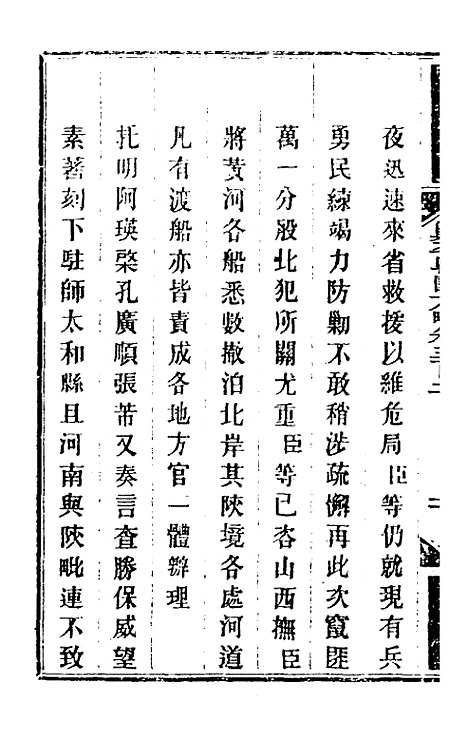 夜迅速來省救援以維危局臣等仍就現有兵
勇民練竭力防勦不敢稍涉疏懈再此次竄匪
萬一分股北犯所關尤重臣等已咨山西撫臣
將黃河各船悉數撤泊北岸其陜境各處河道
凡有渡船亦皆責成各地方官一體辦理
托明阿瑛棨孔廣順張芾又奏言查勝保威望
素著刻下駐師太和縣且河南與陜毗連不致